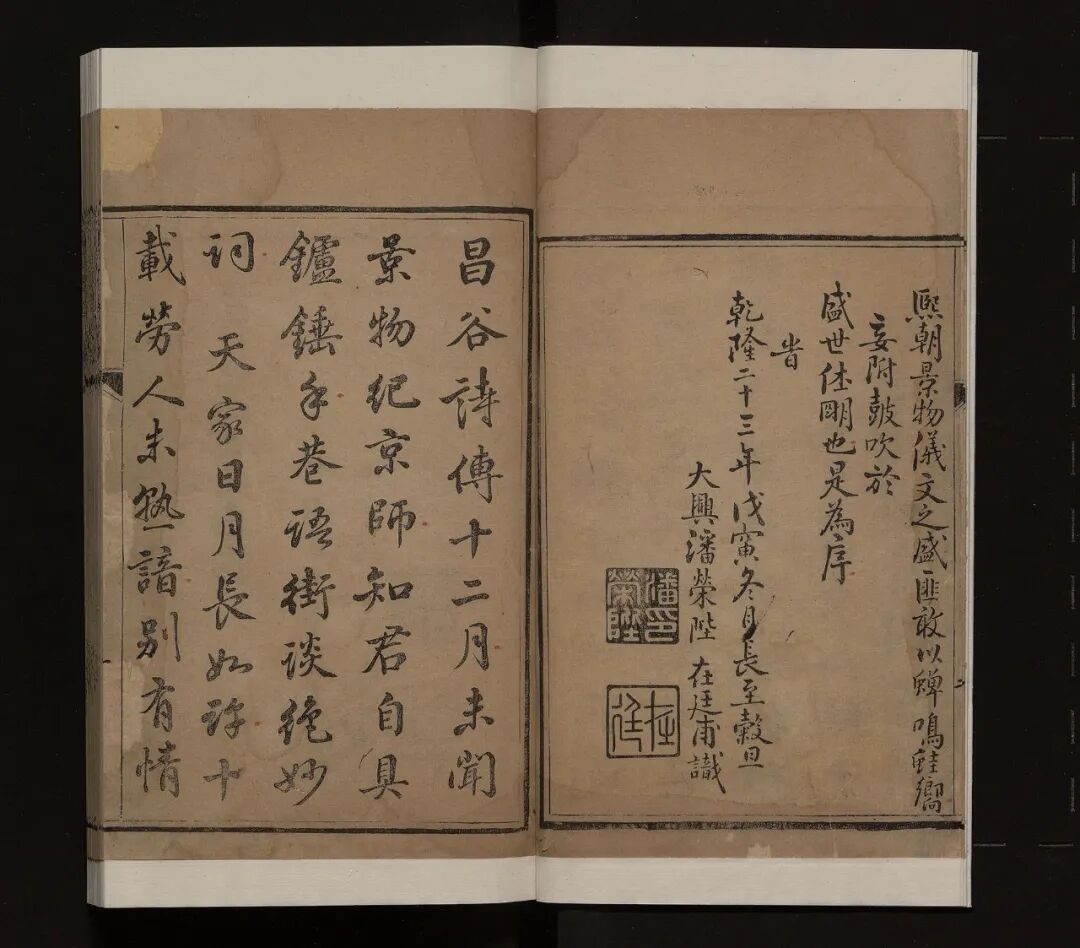 熙朝景物儀文之盛匪敢以蟬鳴蛙響
妄附鼓吹於
盛世休明也是為序
旹
乾隆二十三年戊寅冬月長至穀旦
大興潘榮陛在廷甫識
潘印榮陛
在廷
昌谷詩傳十二月未聞
景物紀京師知君自具
鑪錘手巷語街談絕妙
詞 天家日月長如許十
載勞人未熟諳別有情